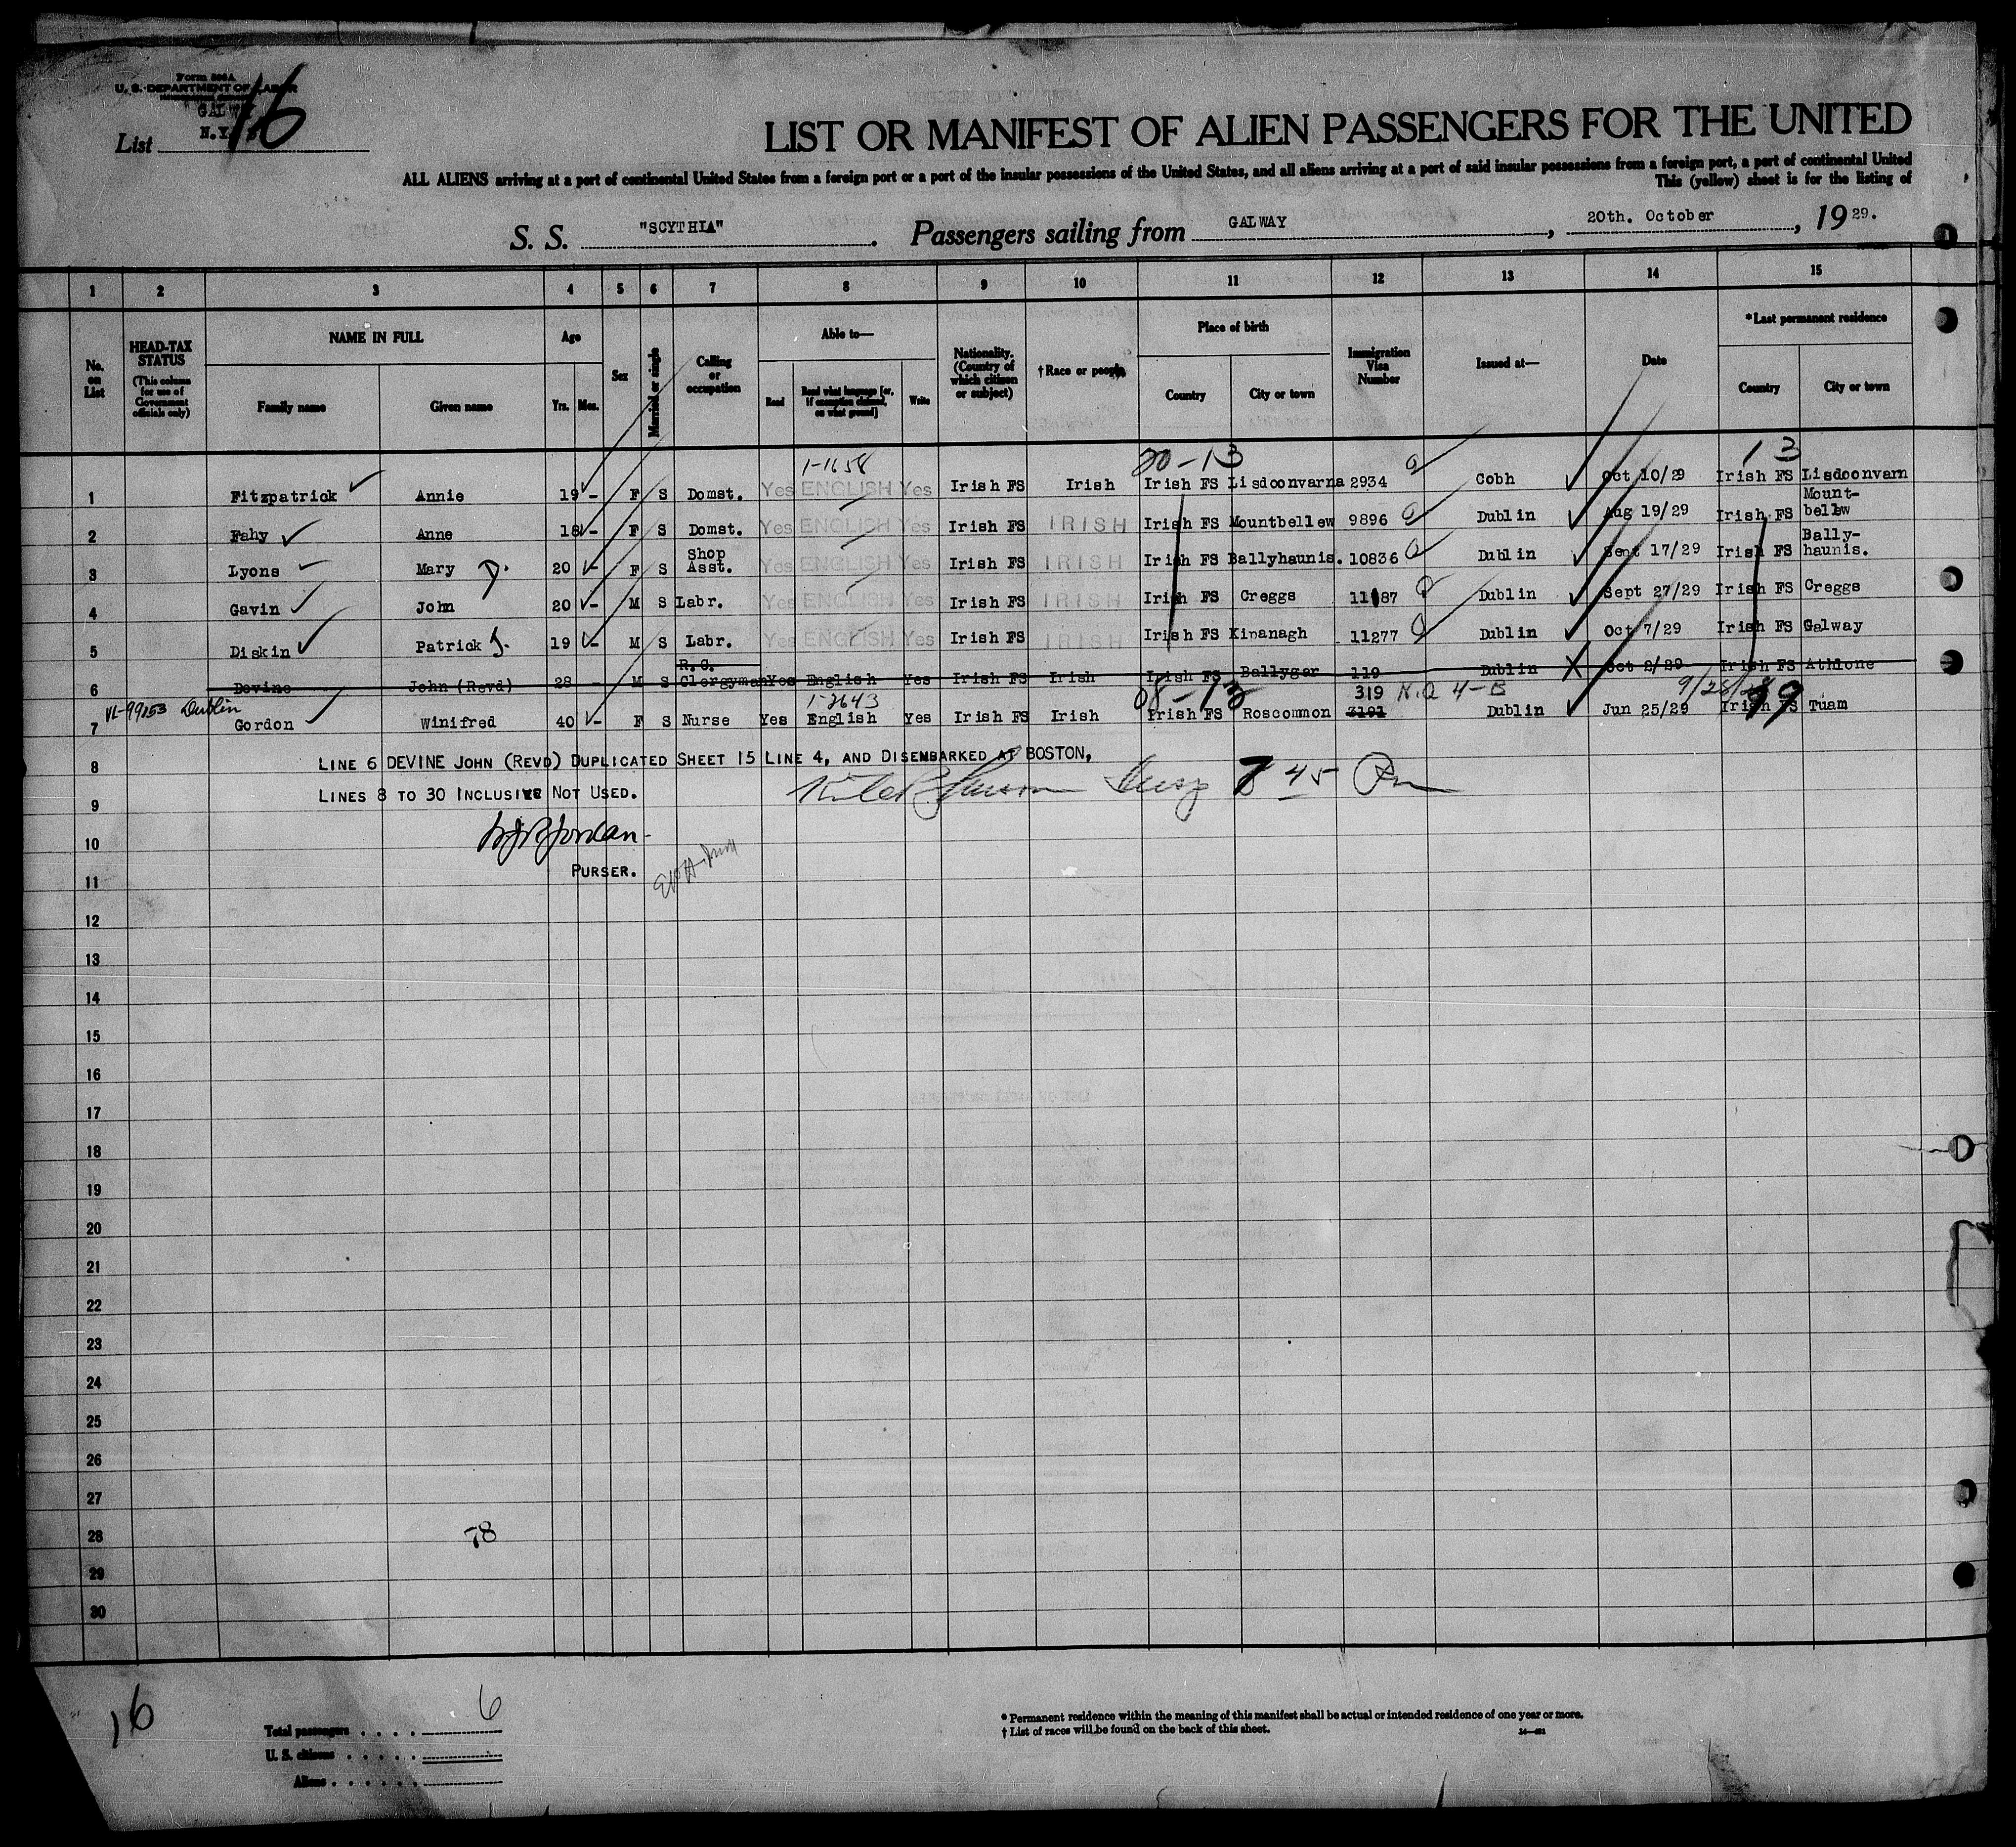 Form 500A
U. S. DEPARTMENT OF LABOR
GALWAY
N.Y.
16
List
LIST OR MANIFEST OF ALIEN PASSENGERS FOR THE UNITED
ALL ALIENS arriving at a port of continental United States from a foreign port or a port of the insular possessions of the United States, and all aliens arriving at a port of said insular possessions from a foreign port, a port of continental United
This (yellow) sheet is for the listing of
S. S. "SCYTHIA". Passengers sailing from GALWAY, 20th. October, 19 29.
1 2 3 4 5 6 7 8 9 10 11 12 13 14 15
No. on List
HEAD-TAX STATUS (This column for use of Government officials only)
NAME IN FULL
Family name Given name
Age
Yrs. Mos.
Sex
Married or single
Calling or occupation
Able to—
Read Read what language [or, if exemption claimed, on what ground] Write
Nationality. (Country of which citizen or subject)
†Race or people
Place of birth
Country City or town
Immigration Visa Number
Issued at—
Date
*Last permanent residence
Country City or town
1-1658 20-13 13
1 Fitzpatrick Annie 19 - F S Domst. Yes ENGLISH Yes Irish FS Irish Irish FS Lisdoonvarna 2934 Cobh Oct 10/29 Irish FS Lisdoonvarn
2 Fahy Anne 18 - F S Domst. Yes ENGLISH Yes Irish FS IRISH Irish FS Mountbellew 9896 Dublin Aug 19/29 Irish FS Mount-bellew
3 Lyons Mary D. 20 - F S Shop Asst. Yes ENGLISH Yes Irish FS IRISH Irish FS Ballyhaunis. 10836 Dublin Sept 17/29 Irish FS Bally-haunis.
4 Gavin John 20 - M S Labr. Yes ENGLISH Yes Irish FS IRISH Irish FS Creggs 11187 Dublin Sept 27/29 Irish FS Creggs
5 Diskin Patrick J. 19 - M S Labr. Yes ENGLISH Yes Irish FS IRISH Irish FS Kinanagh 11277 Dublin Oct 7/29 Irish FS Galway
6 Devine John (Revd) 28 - M S R.C. Clergyman Yes English Yes Irish FS Irish Irish FS Ballygar 119 Dublin Oct 2/29 Irish FS Athlone
VL-99153 Dublin 1-2643 08-13 319 N.Q 4-B 99
7 Gordon Winifred 40 - F S Nurse Yes English Yes Irish FS Irish Irish FS Roscommon 3191 Dublin Jun 25/29 Irish FS Tuam
8 LINE 6 DEVINE JOHN (REVD) DUPLICATED SHEET 15 LINE 4, AND DISEMBARKED AT BOSTON,
9 LINES 8 TO 30 INCLUSIVE NOT USED. 7 45 Pm
10 Jordan
11 PURSER.
12
13
14
15
16
17
18
19
20
21
22
23
24
25
26
27
28 78
29
30
16
Total passengers . . . . 6
U. S. citizens . . . . .
Aliens . . . . . .
* Permanent residence within the meaning of this manifest shall be actual or intended residence of one year or more.
† List of races will be found on the back of this sheet.